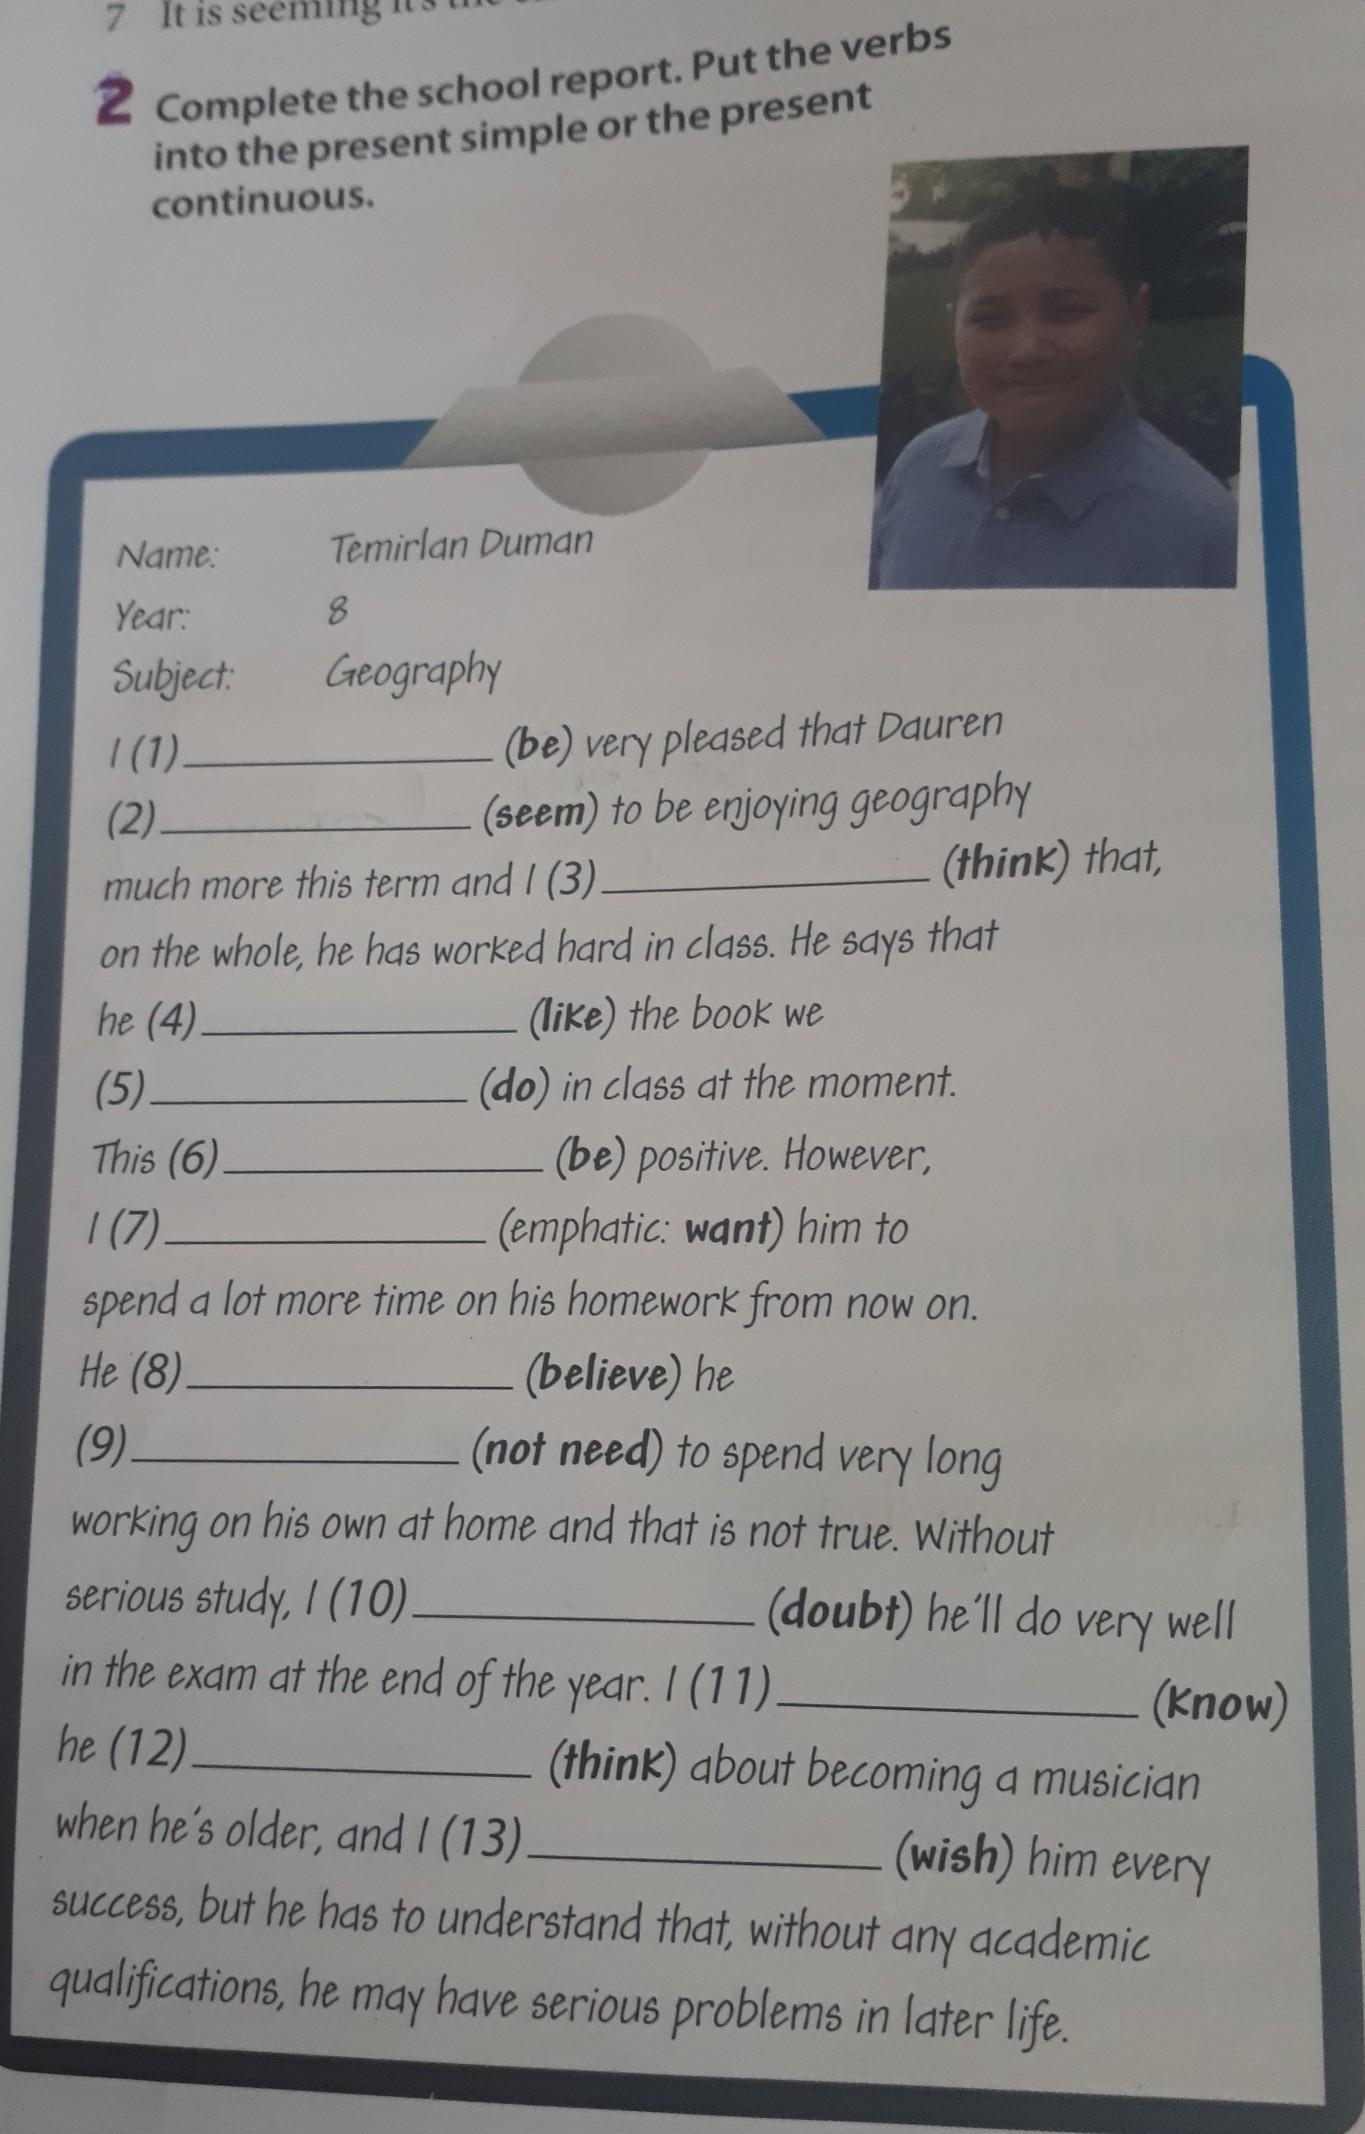 7 It is seeming it's the
2 Complete the school report. Put the verbs
into the present simple or the present
continuous.
Name: Temirlan Duman
Year: 8
Subject: Geography
I (1)____________ (be) very pleased that Dauren
(2)____________ (seem) to be enjoying geography
much more this term and I (3)____________ (think) that,
on the whole, he has worked hard in class. He says that
he (4)____________ (like) the book we
(5)____________ (do) in class at the moment.
This (6)____________ (be) positive. However,
I (7)____________ (emphatic: want) him to
spend a lot more time on his homework from now on.
He (8)____________ (believe) he
(9)____________ (not need) to spend very long
working on his own at home and that is not true. Without
serious study, I (10)____________ (doubt) he'll do very well
in the exam at the end of the year. I (11)____________ (know)
he (12)____________ (think) about becoming a musician
when he's older, and I (13)____________ (wish) him every
success, but he has to understand that, without any academic
qualifications, he may have serious problems in later life.